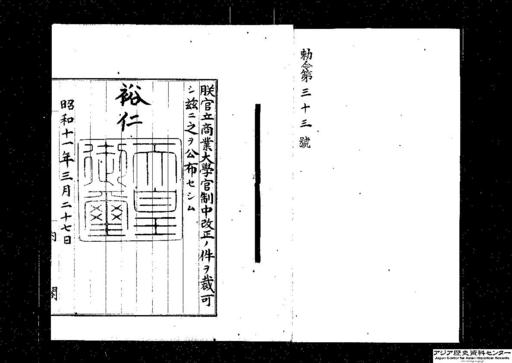 勅令第三十三號
朕官立商業大學官制中改正ノ件ヲ裁可
シ玆ニ之ヲ公布セシム
裕仁
天皇
御璽
昭和十一年三月二十七日
内閣
アジア歴史資料センター
Japan Center for Asian Historical Records